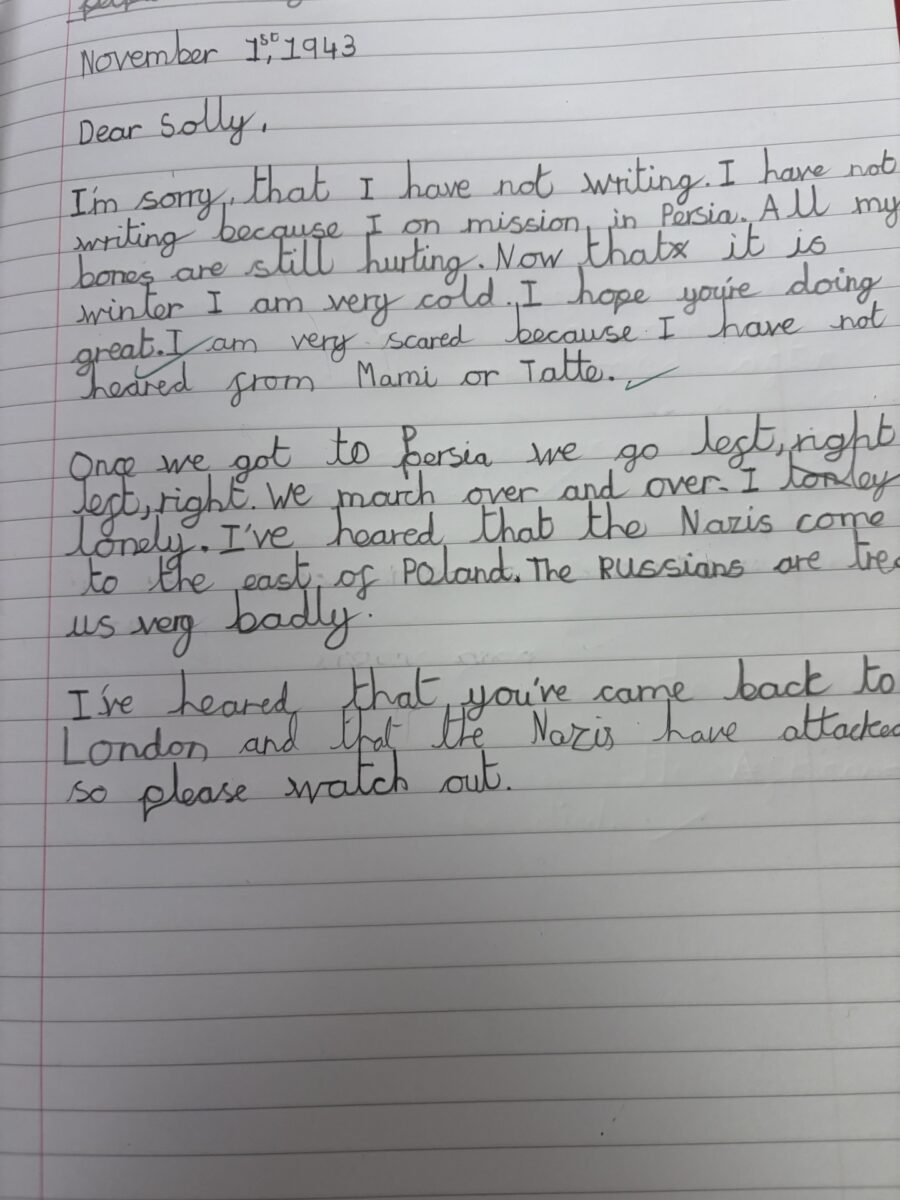 November 1st, 1943
Dear Solly,
I'm sorry, that I have not writing. I have not
writing because I on mission in Persia. All my
bones are still hurting. Now that it is
winter I am very cold. I hope you're doing
great. I am very scared because I have not
heared from Mami or Tatte.
Once we got to Persia we go left, right
left, right. We march over and over. I
lonely. I've heared that the Nazis come
to the east of Poland. The Russians are
us very badly.
I've heared that you've came back to
London and that the Nazis have attacked
so please watch out.